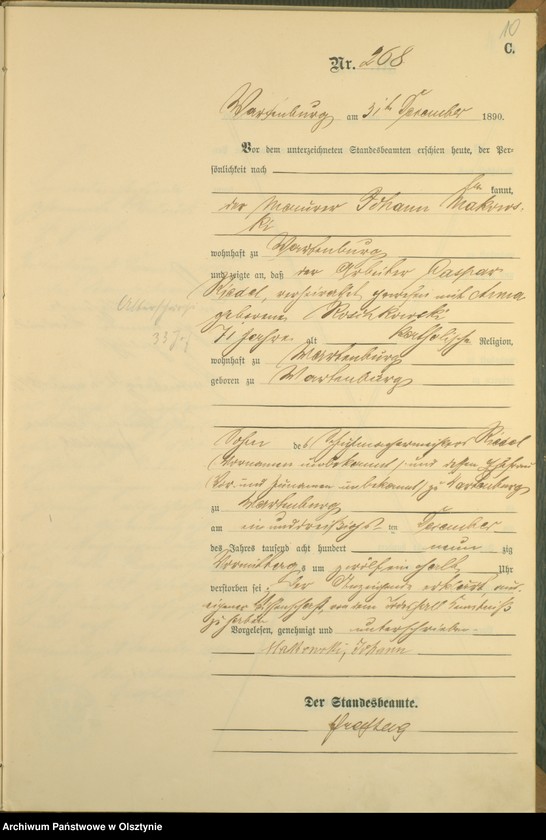 10
C.
Nr. 268
Wartenburg am 31ten December 1890.
Vor dem unterzeichneten Standesbeamten erschien heute, der Per-
sönlichkeit nach
kannt,
der Maurer Johann Makows-
ki
wohnhaft zu Wartenburg
und zeigte an, daß der Arbeiter Caspar
Riedel, verheirathet gewesen mit Anna
geborene Roschkowski
71 Jahre alt katholischer Religion,
wohnhaft zu Wartenburg
geboren zu Wartenburg
Sohn des Schuhmachermeisters Riedel
(Vornamen unbekannt) und dessen Ehefrau
Vor und Zunamen unbekannt, zu Wartenburg
zu Wartenburg
am einunddreißigsten December
des Jahres tausend acht hundert neun zig
Vormittags um zwölfeinhalb Uhr
verstorben sei. Der Anzeigende erklärt aus
eigener Wissenschaft, von dem Todesfall Kenntniß
zu haben
Vorgelesen, genehmigt und unterschrieben
Makowski, Johann
Der Standesbeamte.
Freytag
Archiwum Państwowe w Olsztynie